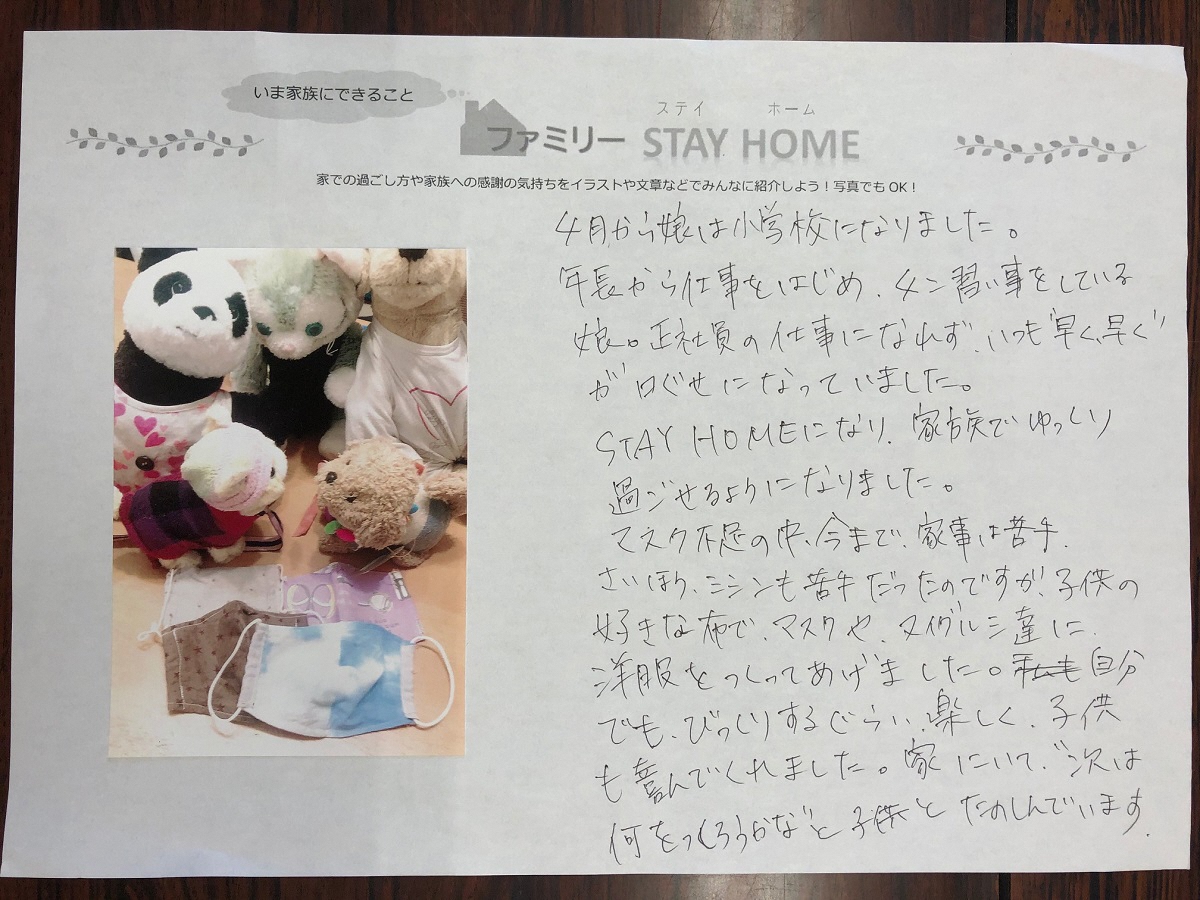 いま家族にできること
ステイ ホーム
ファミリー STAY HOME
家での過ごし方や家族への感謝の気持ちをイラストや文章などでみんなに紹介しよう！写真でもOK！
4月から娘は小学校になりました。
年長から仕事をはじめ、タン習い事をしている
娘。正社員の仕事になれず、いつも"早く、早く"
が口ぐせになっていました。
STAY HOMEになり、家族でゆっくり
過ごせるようになりました。
マスク不足の中、今まで、家事は苦手、
さいほう、ミシンも苦手だったのですが、子供の
好きな布で、マスクや、ヌイグルミ達に、
洋服をつくってあげました。私も自分
でも、びっくりするぐらい、楽しく、子供
も喜んでくれました。家にいて、"次は
何をつくろうかな"と子供とたのしんでいます。